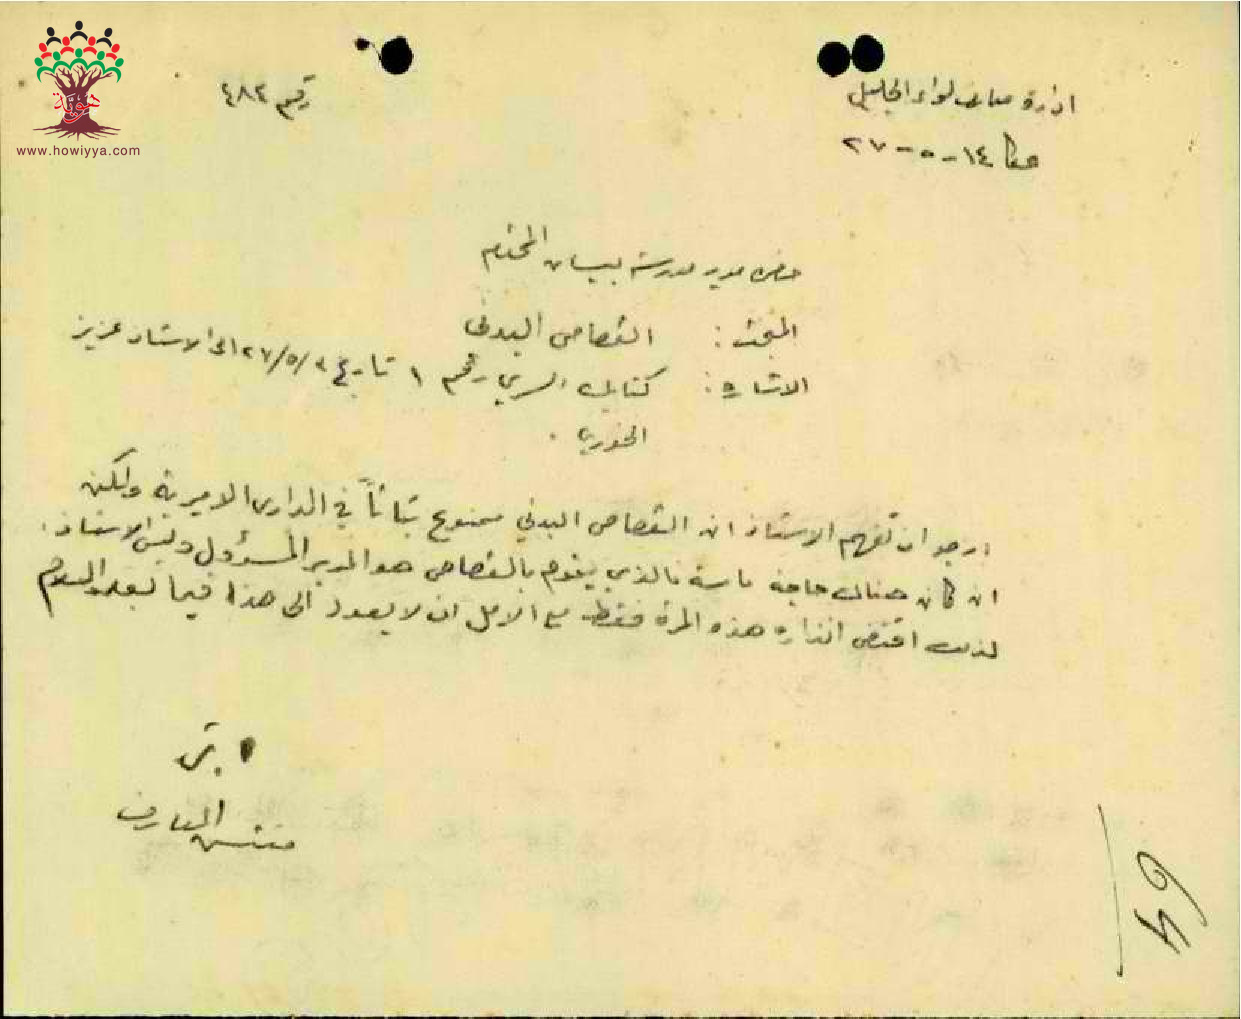 هوية
www.howiyya.com
ادارة معارف لواء الجليل
رقم ٤٨٢
عكا ١٤-٥-٢٧
حضرة مدير مدرسة بيسان المحترم
المبحث: القصاص البدني
الاشارة: كتابك السري رقم ١ تاريخ ٢/٥/٢٧ الى الاستاذ عزيز
الخوري.
ارجو ان تفهم الاستاذ ان القصاص البدني ممنوع بتاتاً في المدارس الاميرية ولكن
ان كان هناك حاجة ماسة فالذي يقوم بالقصاص هو المدير المسؤول وليس الاستاذ.
لذلك اقتضى انذاره هذه المرة فقط مع الامل ان لا يعود الى هذا فيما بعد والسلام
مفتش المعارف
64